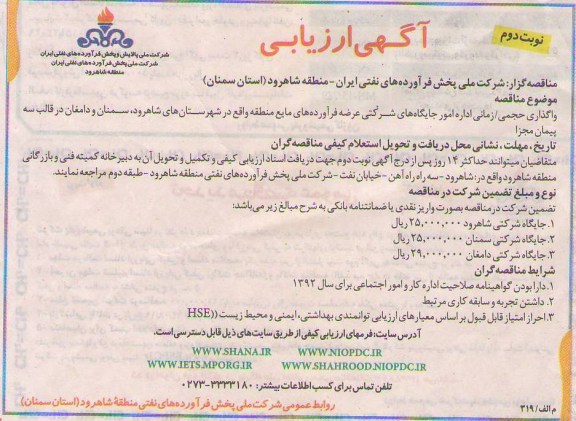 نوبت دوم
آگهی ارزیابی
شرکت ملی پالایش و پخش فرآورده‌های نفتی ایران
شرکت ملی پخش فرآورده‌های نفتی ایران
منطقه شاهرود
مناقصه‌گزار: شرکت ملی پخش فرآورده‌های نفتی ایران - منطقه شاهرود (استان سمنان)
موضوع مناقصه
واگذاری حجمی/زمانی اداره امور جایگاه‌های شرکتی عرضه فرآورده‌های مایع منطقه واقع در شهرستان‌های شاهرود، سمنان و دامغان در قالب سه
پیمان مجزا
تاریخ، مهلت، نشانی محل دریافت و تحویل استعلام کیفی مناقصه‌گران
متقاضیان میتوانند حداکثر ۱۴ روز پس از درج آگهی نوبت دوم جهت دریافت اسناد ارزیابی کیفی و تکمیل و تحویل آن به دبیرخانه کمیته فنی و بازرگانی
منطقه شاهرود واقع در: شاهرود - سه راه راه آهن - خیابان نفت - شرکت ملی پخش فرآورده‌های نفتی منطقه شاهرود - طبقه دوم مراجعه نمایند.
نوع و مبلغ تضمین شرکت در مناقصه
تضمین شرکت در مناقصه بصورت واریز نقدی یا ضمانتنامه بانکی به شرح مبالغ زیر می‌باشد:
۱. جایگاه شرکتی شاهرود ۲۵,۰۰۰,۰۰۰ ریال
۲. جایگاه شرکتی سمنان ۲۵,۰۰۰,۰۰۰ ریال
۳. جایگاه شرکتی دامغان ۲۹,۰۰۰,۰۰۰ ریال
شرایط مناقصه‌گران
۱. دارا بودن گواهینامه صلاحیت اداره کار و امور اجتماعی برای سال ۱۳۹۲
۲. داشتن تجربه و سابقه کاری مرتبط
۳. احراز امتیاز قابل قبول بر اساس معیارهای ارزیابی توانمندی بهداشتی، ایمنی و محیط زیست (HSE)
آدرس سایت: فرمهای ارزیابی کیفی از طریق سایت‌های ذیل قابل دسترسی است.
WWW.SHANA.IR WWW.NIOPDC.IR
WWW.IETS.MPORG.IR WWW.SHAHROOD.NIOPDC.IR
تلفن تماس برای کسب اطلاعات بیشتر: ۳۳۳۳۱۸۰-۰۲۷۳
روابط عمومی شرکت ملی پخش فرآورده‌های نفتی منطقهٔ شاهرود (استان سمنان)
م الف / ۳۱۹